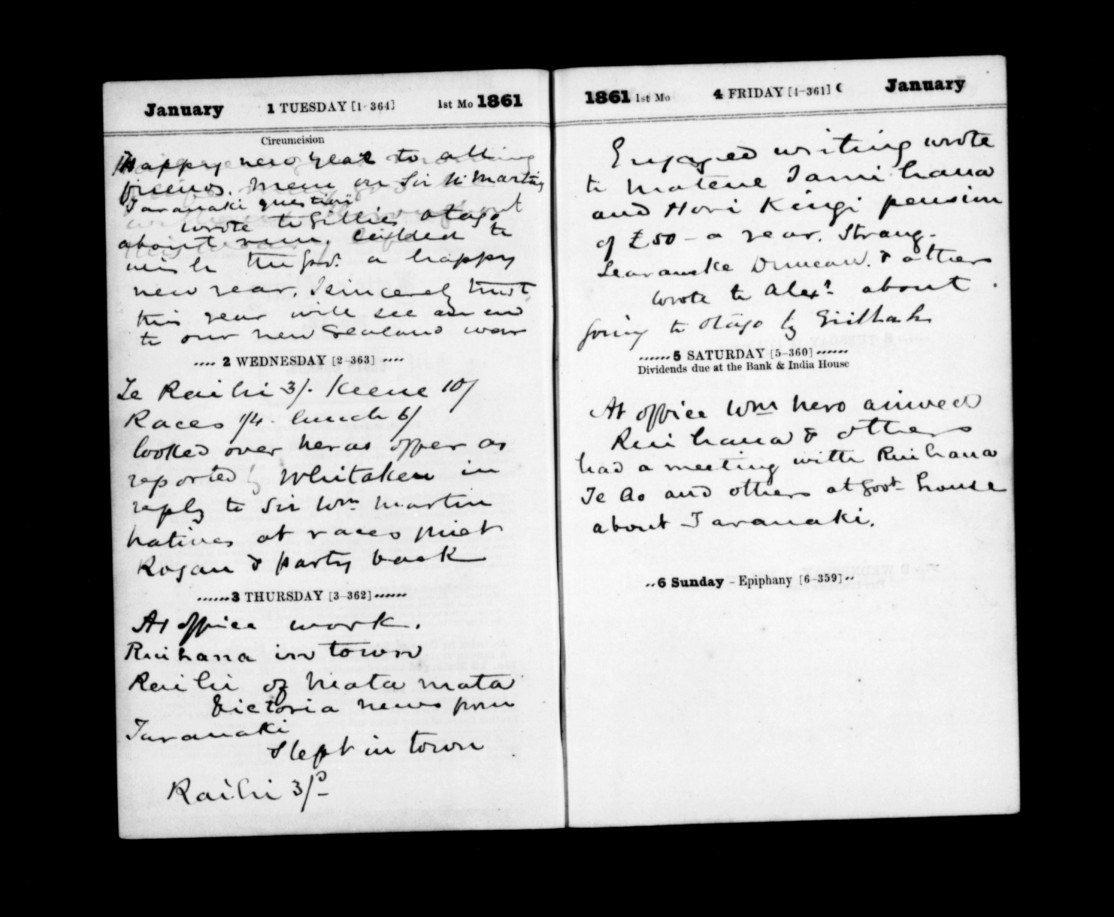 January 1 TUESDAY [1-364] 1st Mo 1861
Circumcision
Happy new year to all
friends. Mem on Sir W Martin
Taranaki question
wrote to Gillies Otago
about called to
wish the Gov. a happy
new year. I sincerely trust
this year will see an end
to our New Zealand war
2 WEDNESDAY [2-363]
Te Raihi 3/. Keene 10/
Races 1/4. lunch 6/
looked over
reported by Whitaker in
reply to Sir Wm Martin
natives at races met
Rogan & party back
3 THURSDAY [3-362]
At office work.
Ruihana in town
Raihi of Mata mata
Victoria news from
Taranaki
Slept in town
Raihi 3/-
1861 1st Mo 4 FRIDAY [4-361] ☾ January
Engaged writing wrote
to Matene Tamihana
and Hori Kingi pension
of £50 - a year. Strang.
Searancke Duncan. & others
wrote to Alexr. about
going to Otago by
5 SATURDAY [5-360]
Dividends due at the Bank & India House
At office Wm hero arrived
Ruihana & others
had a meeting with Ruihana
Te Ao and others at Govt. house
about Taranaki.
6 Sunday - Epiphany [6-359]